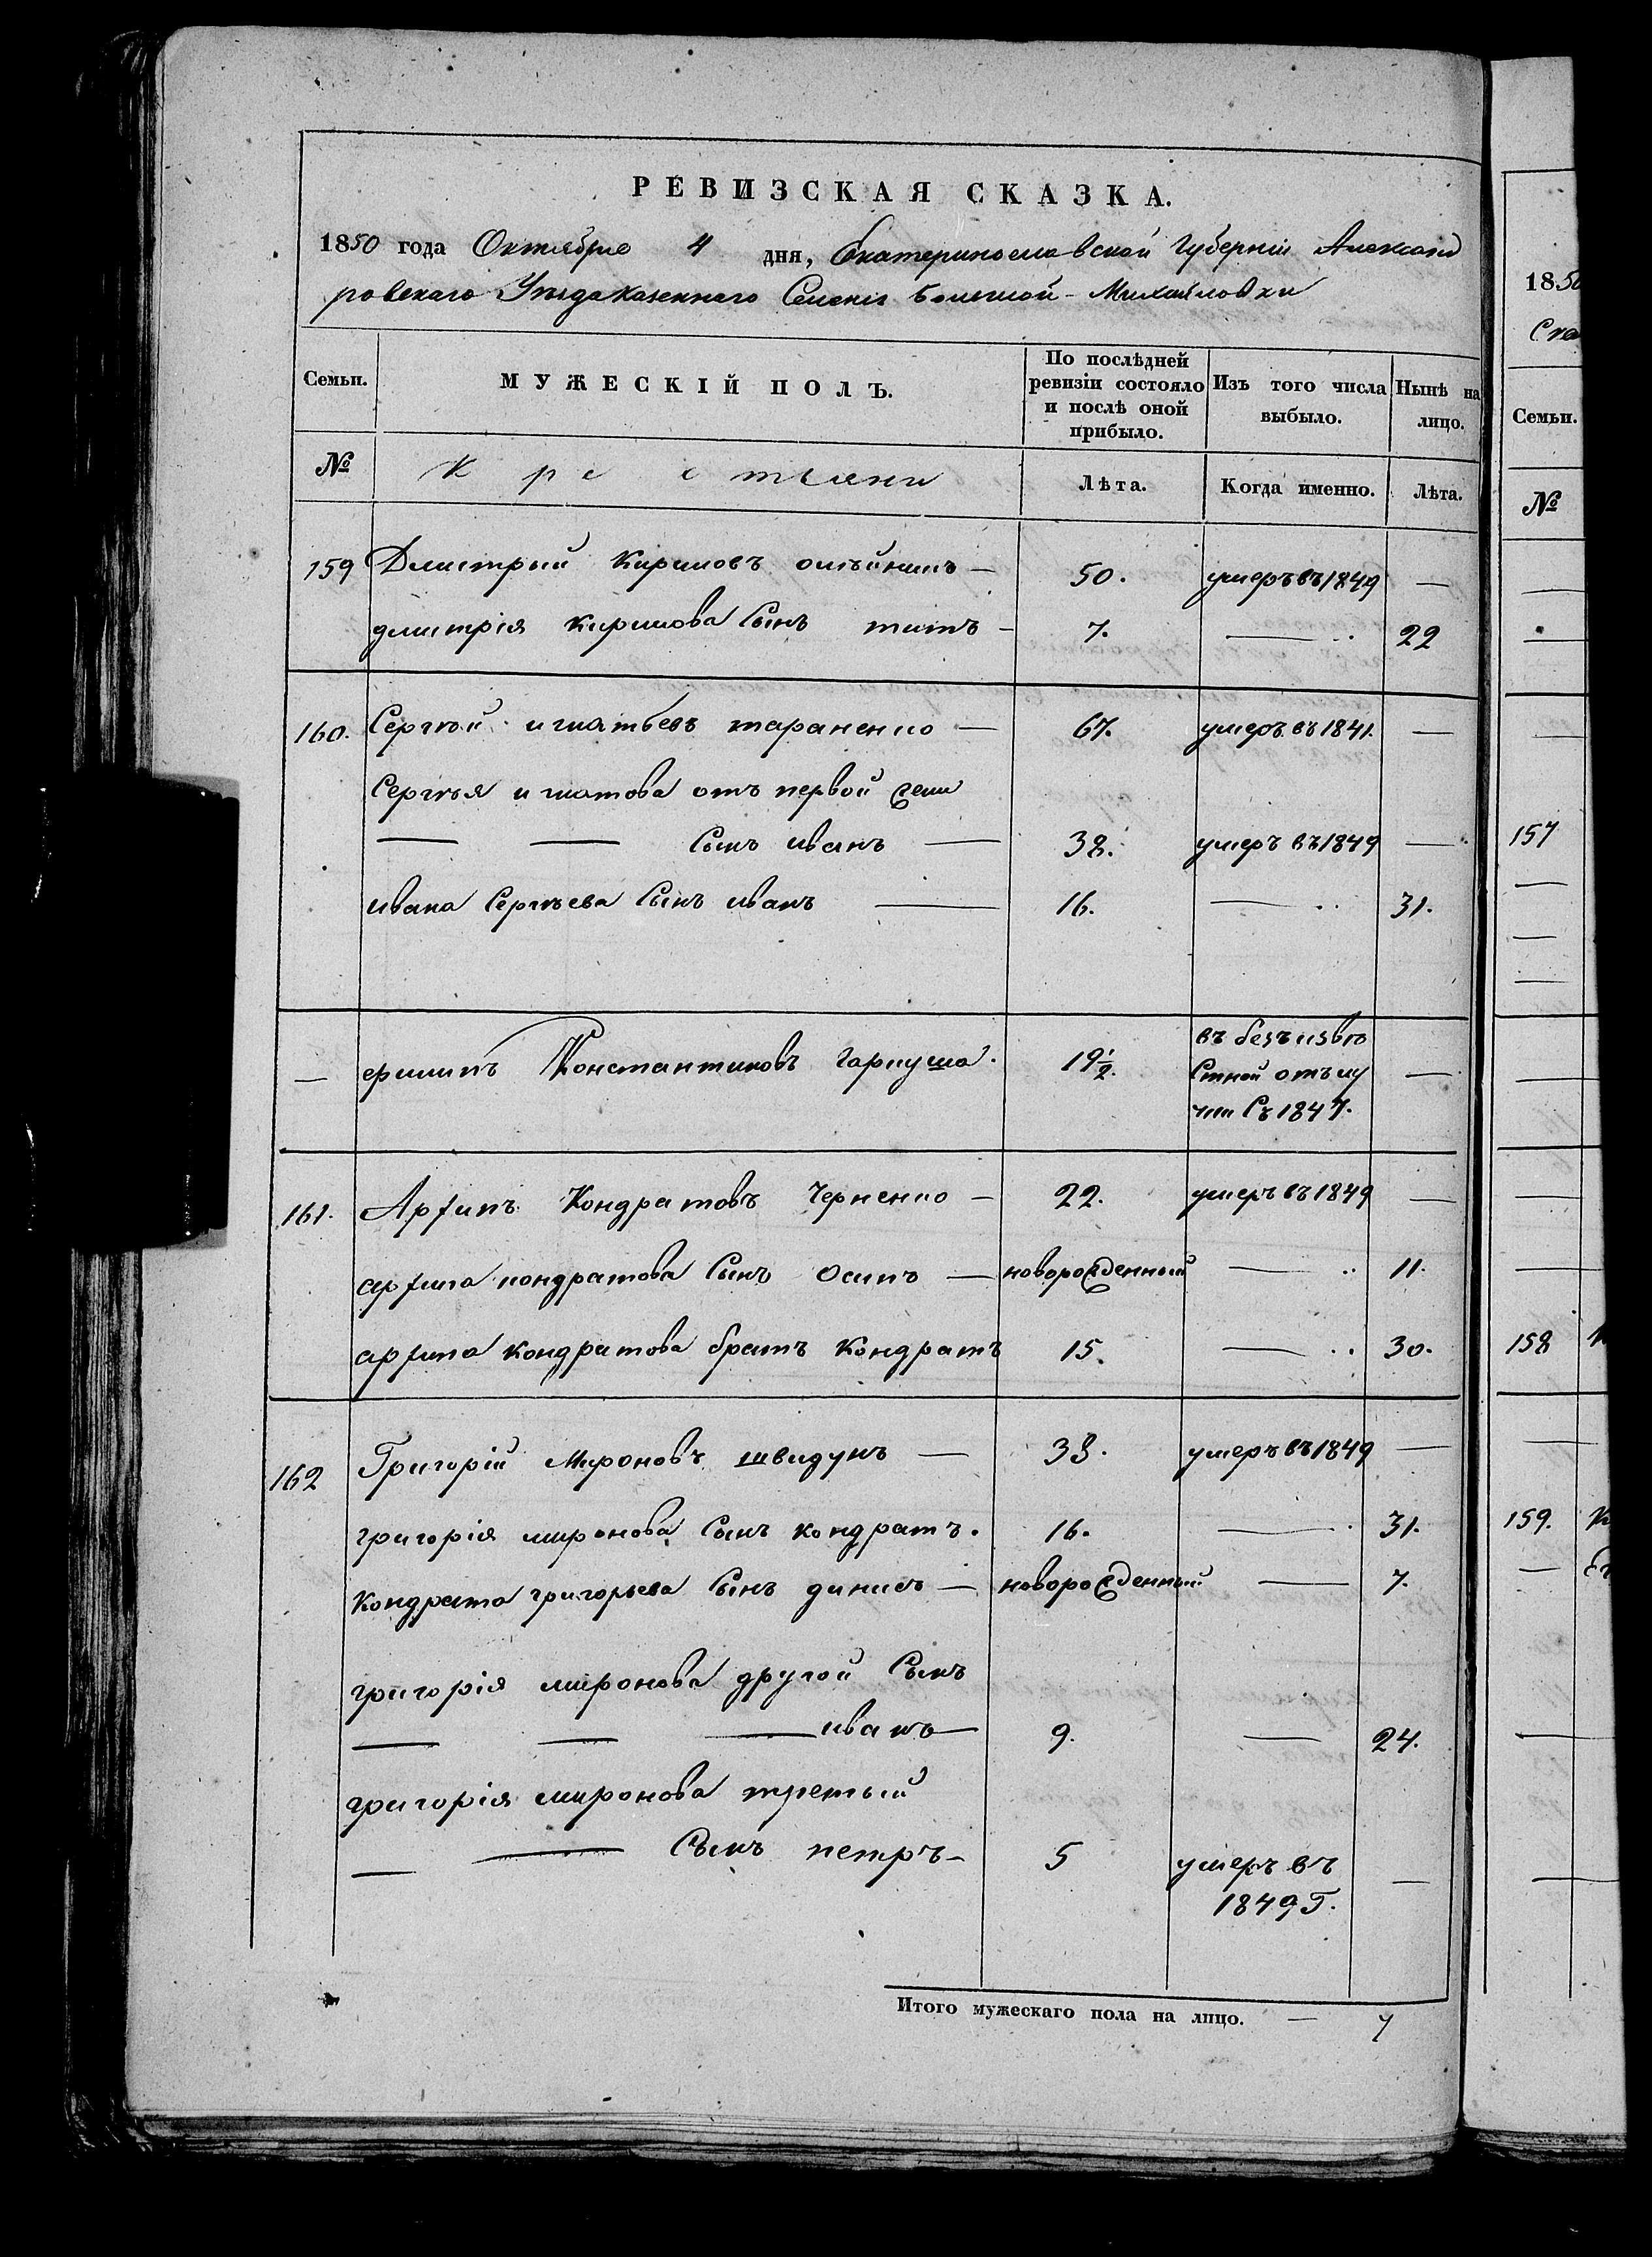 РЕВИЗСКАЯ СКАЗКА.
1850 года Октября 4 дня, Екатеринославской Губерніи Александ
ровскаго Уѣзда казеннаго Селенія Большой-Михайловки
Семьи. МУЖЕСКІЙ ПОЛЪ. По послѣдней ревизіи состояло и послѣ оной прибыло. Изъ того числа выбыло. Нынѣ на лицо.
№ Крестьяни Лѣта. Когда именно. Лѣта.
159 Дмитрый Кириловъ олѣйникъ — 50. умеръ въ 1849 —
дмитрія кирилова Сынъ титъ — 7. — .. 22
160. Сергѣй игнатьевъ тараненко — 67. умеръ въ 1841. —
Сергѣя игнатова отъ первой жены
— — Сынъ иванъ — 38. умеръ въ 1849 —
ивана Сергѣева Сынъ иванъ — 16. — .. 31.
— филипъ Константиновъ гаркуша. 19½. въ безъизвѣ
Стной отълу —
чки Съ 1847.
161. Архипъ Кондратовъ Черненко — 22. умеръ въ 1849 —
архипа кондратова Сынъ Осипъ — новорожденный — .. 11.
архипа кондратова братъ кондратъ 15. — .. 30.
162 Григорій Мироновъ швидунъ — 33. умеръ въ 1849 —
григорія миронова Сынъ кондратъ. 16. — . 31.
кондрата григорьева Сынъ динисъ — новорожденный — 7.
григорія миронова другой Сынъ
— — — иванъ — 9. — 24.
григорія миронова третьій
— — Сынъ петръ — 5 умеръ въ —
1849 г.
Итого мужескаго пола на лицо. — 7
1850
Семьи.
№
157
158
159.